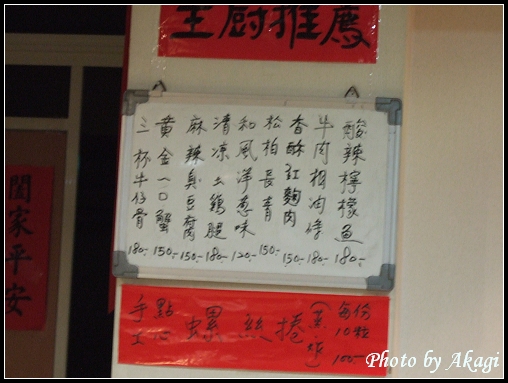 主廚推薦
酸辣檸檬魚 180.-
牛肉相油條 180.-
香酥紅麴肉 150.-
松柏長青 150.-
和風洋蔥味 120.-
清涼土雞腿 180.-
麻辣臭豆腐 150.-
黃金一口蟹 150.-
三杯牛仔骨 180.-
手工點心 螺絲捲 (蒸炸) 每份10粒 100.-
闔家平安
Photo by Akagi